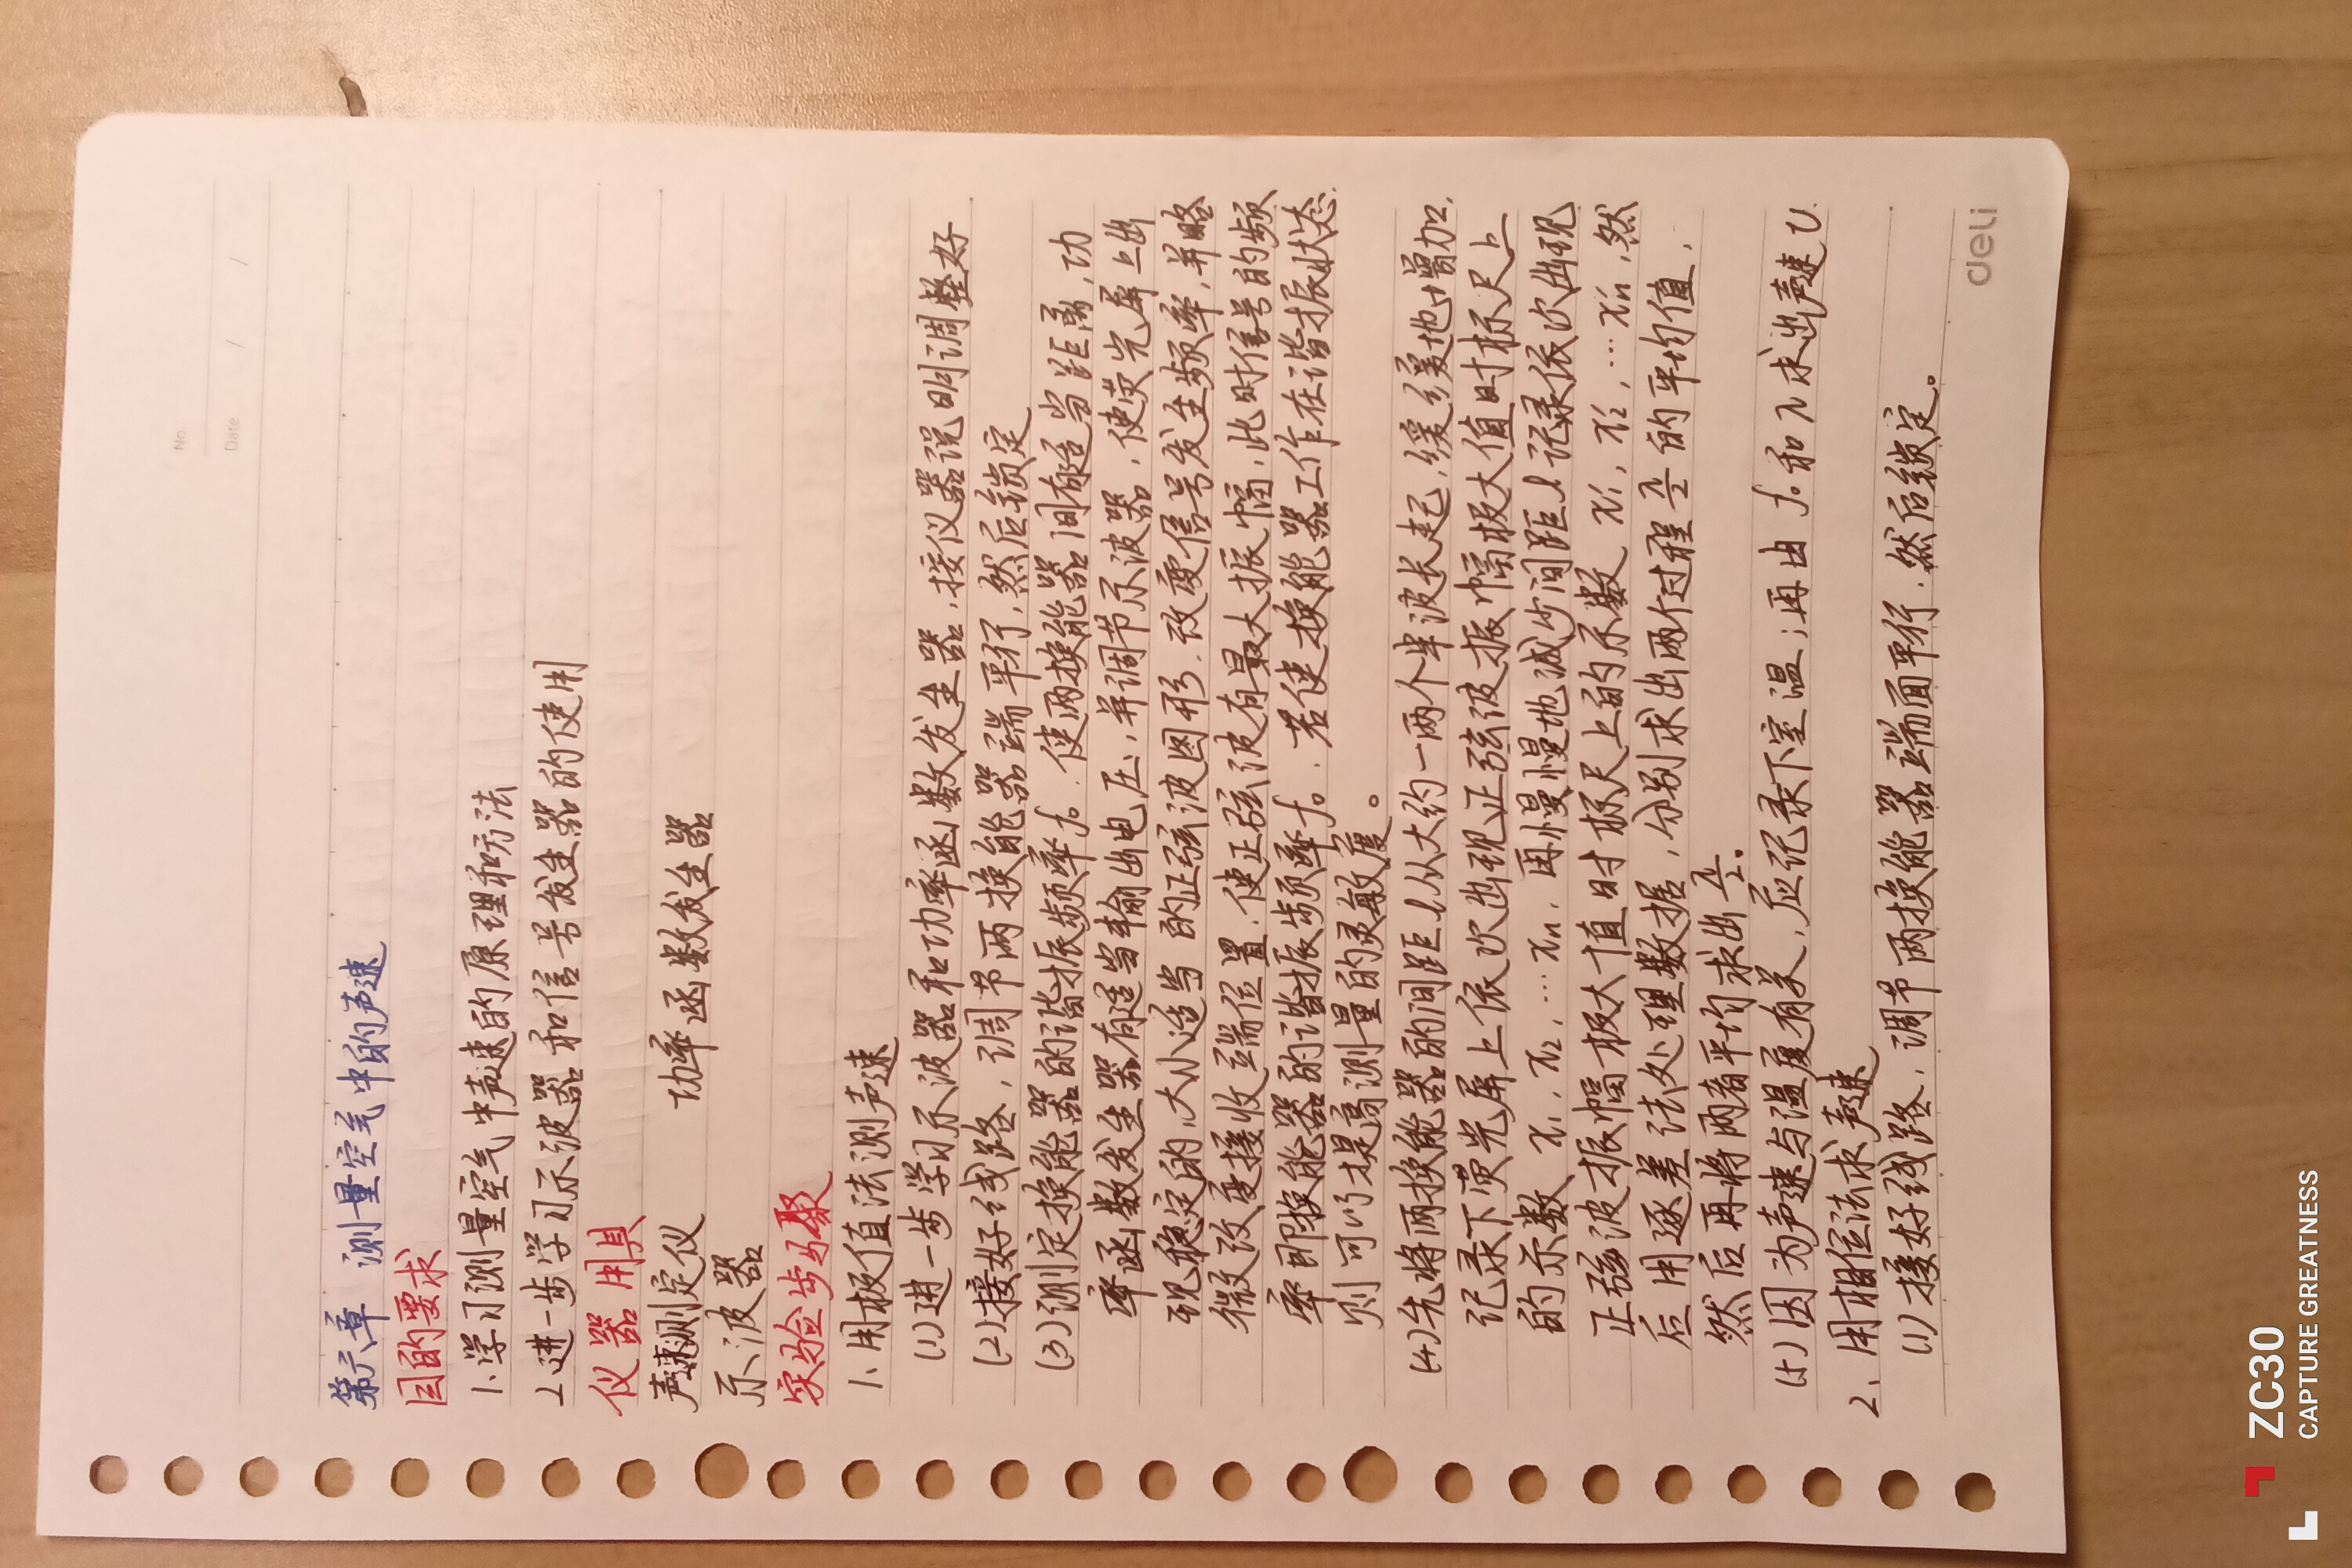 No.
Date / /
第六章 测量空气中的声速
目的要求
1.学习测量空气中声速的原理和方法
2.进一步学习示波器和信号发生器的使用
仪器用具
声速测定仪 功率函数发生器
示波器
实验步骤
1.用极值法测声速
(1)进一步学习示波器和功率函数发生器,按仪器说明调整好
(2)接好线路,调节两换能器端平行,然后锁定
(3)测定换能器的谐振频率f₀.使两换能器间有适当距离,功
率函数发生器有适当输出电压,并调节示波器,使荧光屏上出
现稳定的,大小适当的正弦波图形.改变信号发生频率,并略
微改变接收端位置.使正弦波有最大振幅,此时信号的频
率即换能器的谐振频率f₀.若使换能器工作在谐振状态.
则可以提高测量的灵敏度。
(4)先将两换能器的间距l从大约一两个半波长起,缓缓地增加.
记录下荧光屏上依次出现正弦波振幅极大值时标尺上
的示数x₁,x₂,…xₙ,再慢慢地减少间距l记录依次出现
正弦波振幅极大值时标尺上的示数x₁,x₂,…xₙ,然
后用逐差法处理数据,分别求出两个过程的平均值,
然后再将两者平均求出
(5)因为声速与温度有关,应记录下室温;再由f₀和λ求出声速v
2、用相位法求声速
(1)接好线路,调节两换能器端面平行.然后锁定。
deli
ZC30
CAPTURE GREATNESS